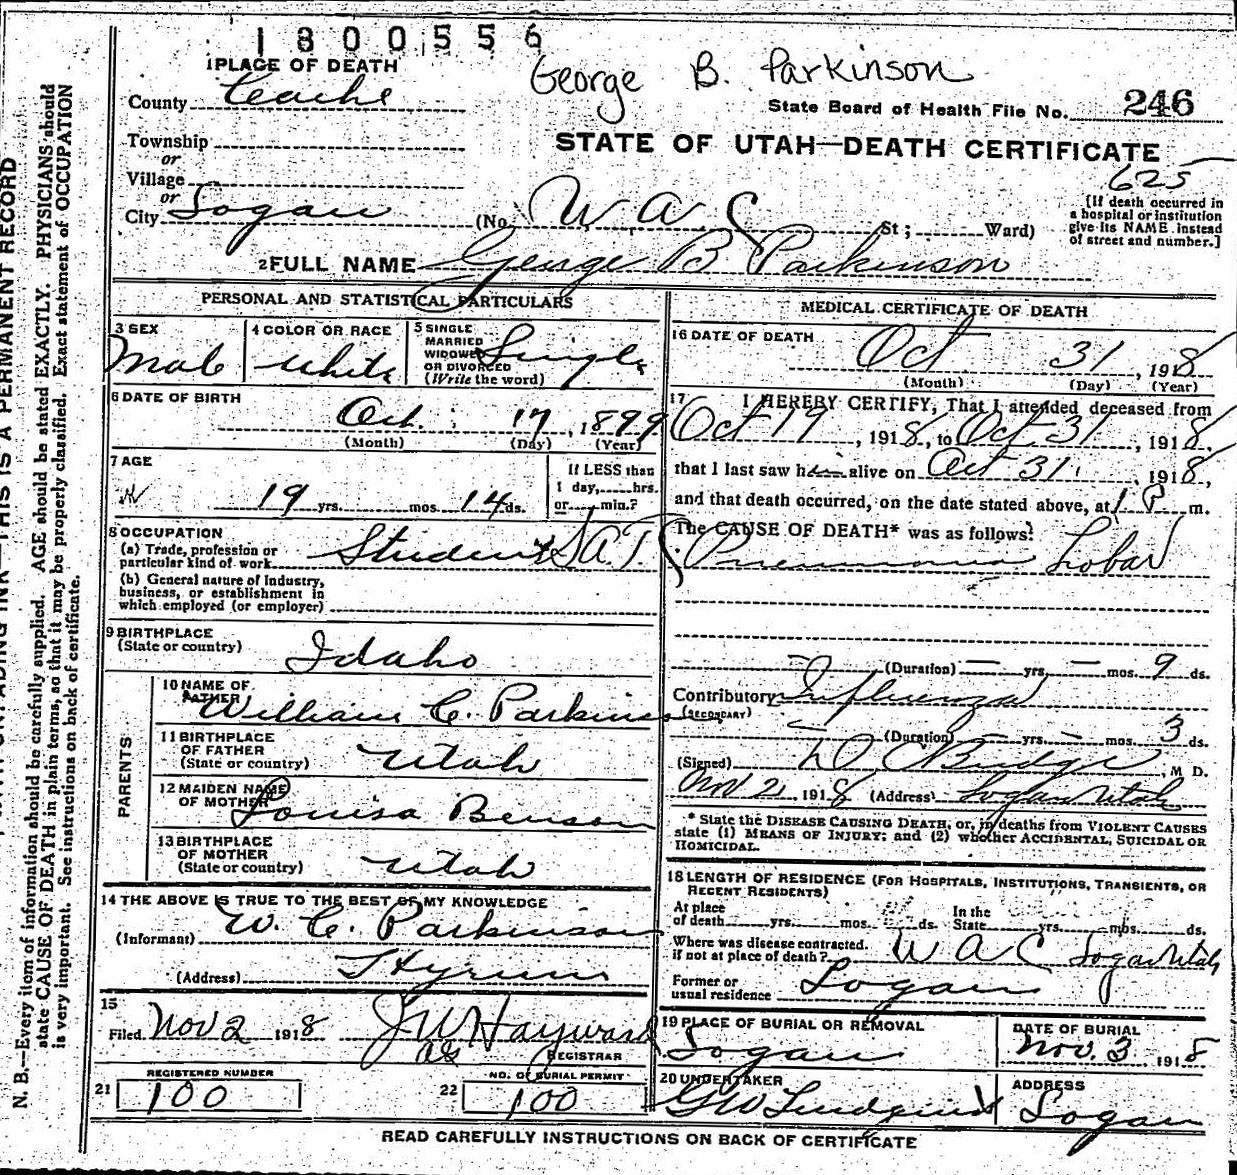 1800556
1 PLACE OF DEATH
George B. Parkinson
County Cache
State Board of Health File No. 246
Township
or
STATE OF UTAH—DEATH CERTIFICATE
Village
or
625
City Logan (No. U A C St; Ward)
[If death occurred in
a hospital or institution
give its NAME instead
of street and number.]
2 FULL NAME George B Parkinson
PERSONAL AND STATISTICAL PARTICULARS
3 SEX
Male
4 COLOR OR RACE
White
5 SINGLE
MARRIED
WIDOWED
OR DIVORCED
(Write the word)
Single
6 DATE OF BIRTH
Oct. 17, 1899
(Month) (Day) (Year)
7 AGE
19 yrs. mos. 14 ds.
If LESS than
1 day, hrs.
or min.?
8 OCCUPATION
(a) Trade, profession or
particular kind of work Student S.A.T.C.
(b) General nature of Industry,
business, or establishment in
which employed (or employer)
9 BIRTHPLACE
(State or country)
Idaho
PARENTS
10 NAME OF
FATHER
William C. Parkinson
11 BIRTHPLACE
OF FATHER
(State or country)
Utah
12 MAIDEN NAME
OF MOTHER
Louisa Benson
13 BIRTHPLACE
OF MOTHER
(State or country)
Utah
14 THE ABOVE IS TRUE TO THE BEST OF MY KNOWLEDGE
(Informant) W. C. Parkinson
(Address) Hyrum
15
Filed Nov 2 1918 J W Hayward
REGISTRAR
REGISTERED NUMBER
21 100
NO. OF BURIAL PERMIT
22 100
MEDICAL CERTIFICATE OF DEATH
16 DATE OF DEATH
Oct 31, 1918
(Month) (Day) (Year)
17 I HEREBY CERTIFY, That I attended deceased from
Oct 19, 1918, to Oct 31, 1918.
that I last saw him alive on Oct 31, 1918,
and that death occurred, on the date stated above, at 1 P m.
The CAUSE OF DEATH* was as follows:
Pneumonia Lobar
(Duration) — yrs. — mos. 9 ds.
Contributory Influenza
(SECONDARY)
(Duration) — yrs. — mos. 3 ds.
(Signed) D C Budge, M D.
Nov 2, 1918 (Address) Logan Utah
* State the DISEASE CAUSING DEATH, or, in deaths from VIOLENT CAUSES
state (1) MEANS OF INJURY; and (2) whether ACCIDENTAL, SUICIDAL OR
HOMICIDAL.
18 LENGTH OF RESIDENCE (FOR HOSPITALS, INSTITUTIONS, TRANSIENTS, OR
RECENT RESIDENTS)
At place
of death yrs. mos. ds.
In the
State yrs. mos. ds.
Where was disease contracted.
if not at place of death? U A C Logan Utah
Former or
usual residence Logan
19 PLACE OF BURIAL OR REMOVAL
Logan
DATE OF BURIAL
Nov. 3 1918
20 UNDERTAKER
G W Lindquist
ADDRESS
Logan
READ CAREFULLY INSTRUCTIONS ON BACK OF CERTIFICATE
N. B.—Every item of information should be carefully supplied. AGE should be stated EXACTLY. PHYSICIANS should
state CAUSE OF DEATH in plain terms, so that it may be properly classified. Exact statement of OCCUPATION
is very important. See instructions on back of certificate.
INK—THIS IS A PERMANENT RECORD